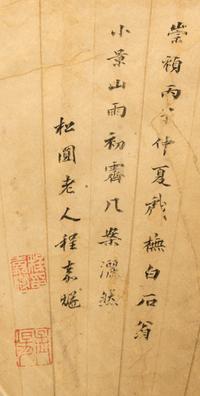 崇禎丙子仲夏戲橅白石翁
小景山雨初霽几案灑然
松圓老人程嘉燧